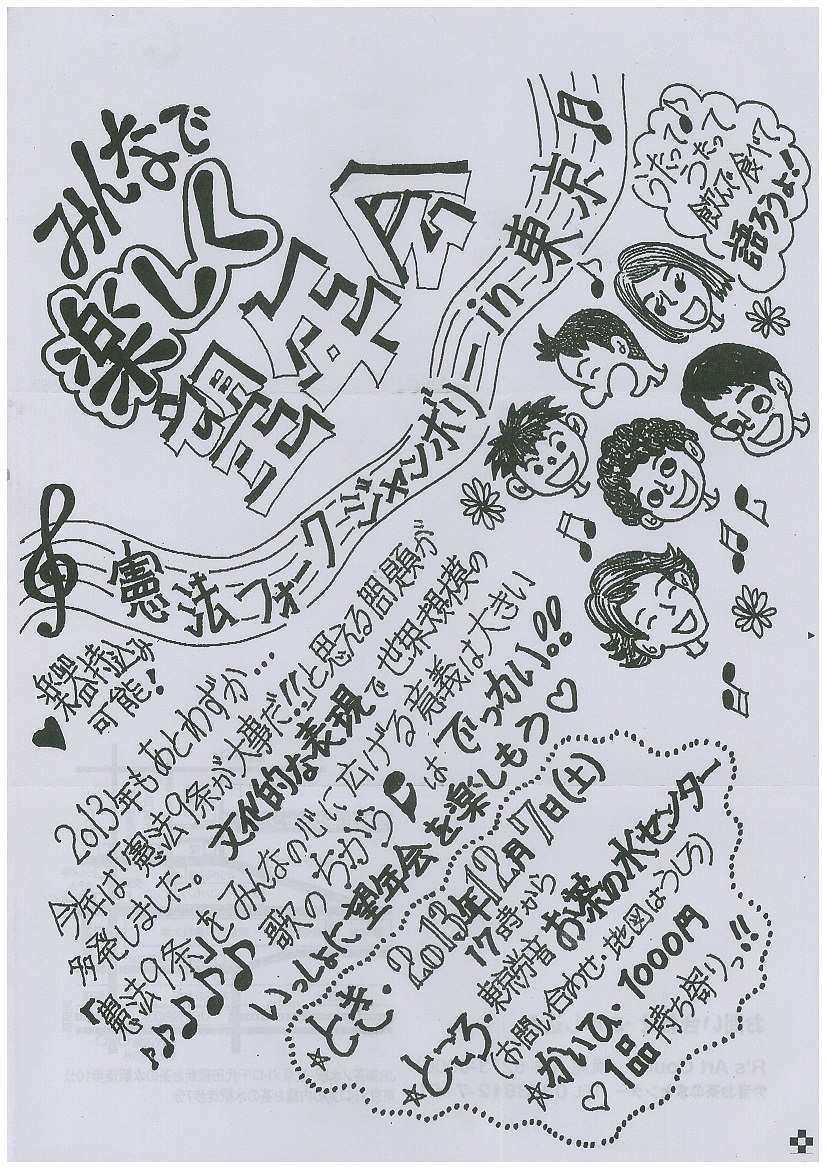 みんなで
楽しく
望年会
憲法フォークジャンボリー in 東京
うたって
うたって
飲んで食べて
語ろうよ!
楽器持込み
可能!
2013年もあとわずか…
今年は「憲法9条が大事だ!!」と思える問題が
多発しました。文化的な表現で世界規模の
「憲法9条」をみんなの心に広げる意義は大きい
歌のちからはでっかい!!
いっしょに望年会を楽しもう♡
☆とき・2013年12月7日(土)
17時から
☆ところ・東京労音お茶の水センター
(お問い合わせ・地図はうしろ)
☆かいひ・1000円
♡1品持ち寄りっ!!